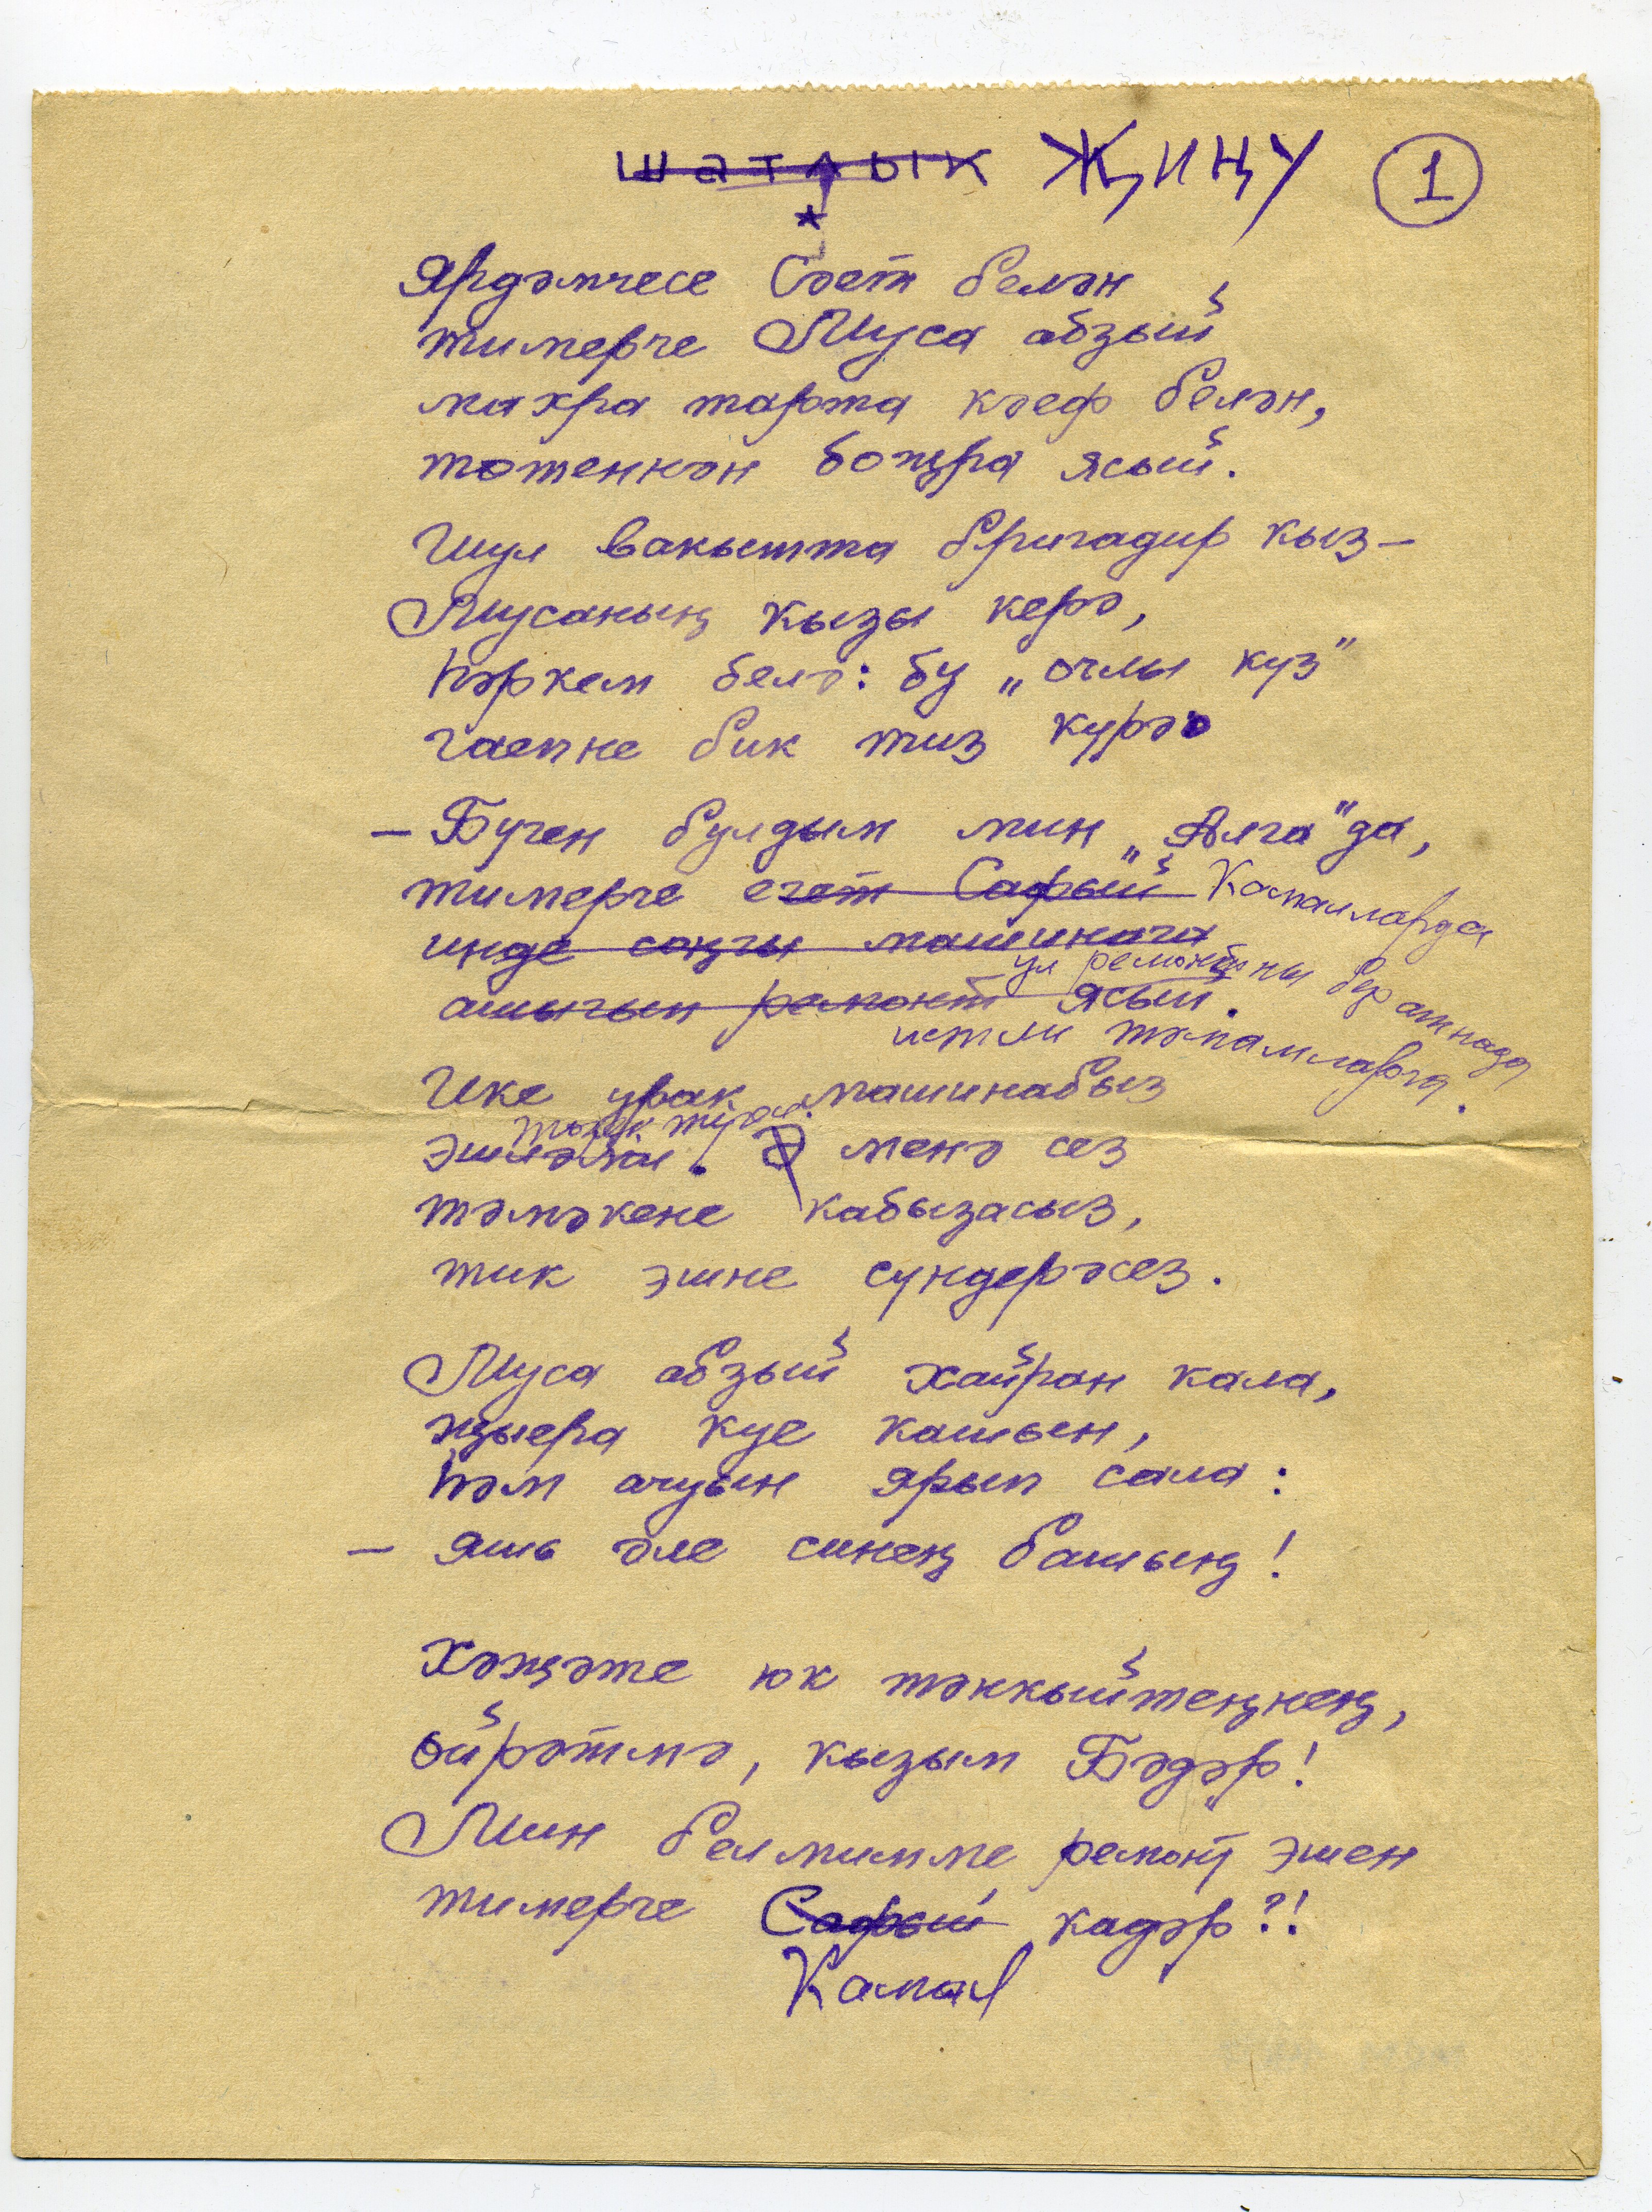 шатлык ҖИҢҮ 1
Ярдәмчесе Сәет белән
тимерче Муса абзый
махра тарта кәеф белән,
төтеннән боҗра ясый.
Шул вакытта бригадир кыз –
Мусаның кызы керә,
Һәркем белә: бу „очлы күз"
гаепне бик тиз күрә
– Бүген булдым мин „Алга"да,
тимерче егет Сафый Камаилларда
инде соңгы машинага
ул ремонтны бер атнада
ашыгып ремонт ясый.
истли тәмамларга.
Ике урак машинабыз
төзек түгел.
эшләми. Ә менә сез
тәмәкене кабызасыз,
тик эшне сүндерәсез.
Муса абзый хәйран кала,
җыера куе кашын,
Һәм ачуын ярып сала:
– яшь әле синең башың!
Хәҗәте юк тәнкыйтеңнең,
өйрәтмә, кызым Бәдәр!
Мин белмимме ремонт эшен
тимерче Сафый кадәр?!
Камал